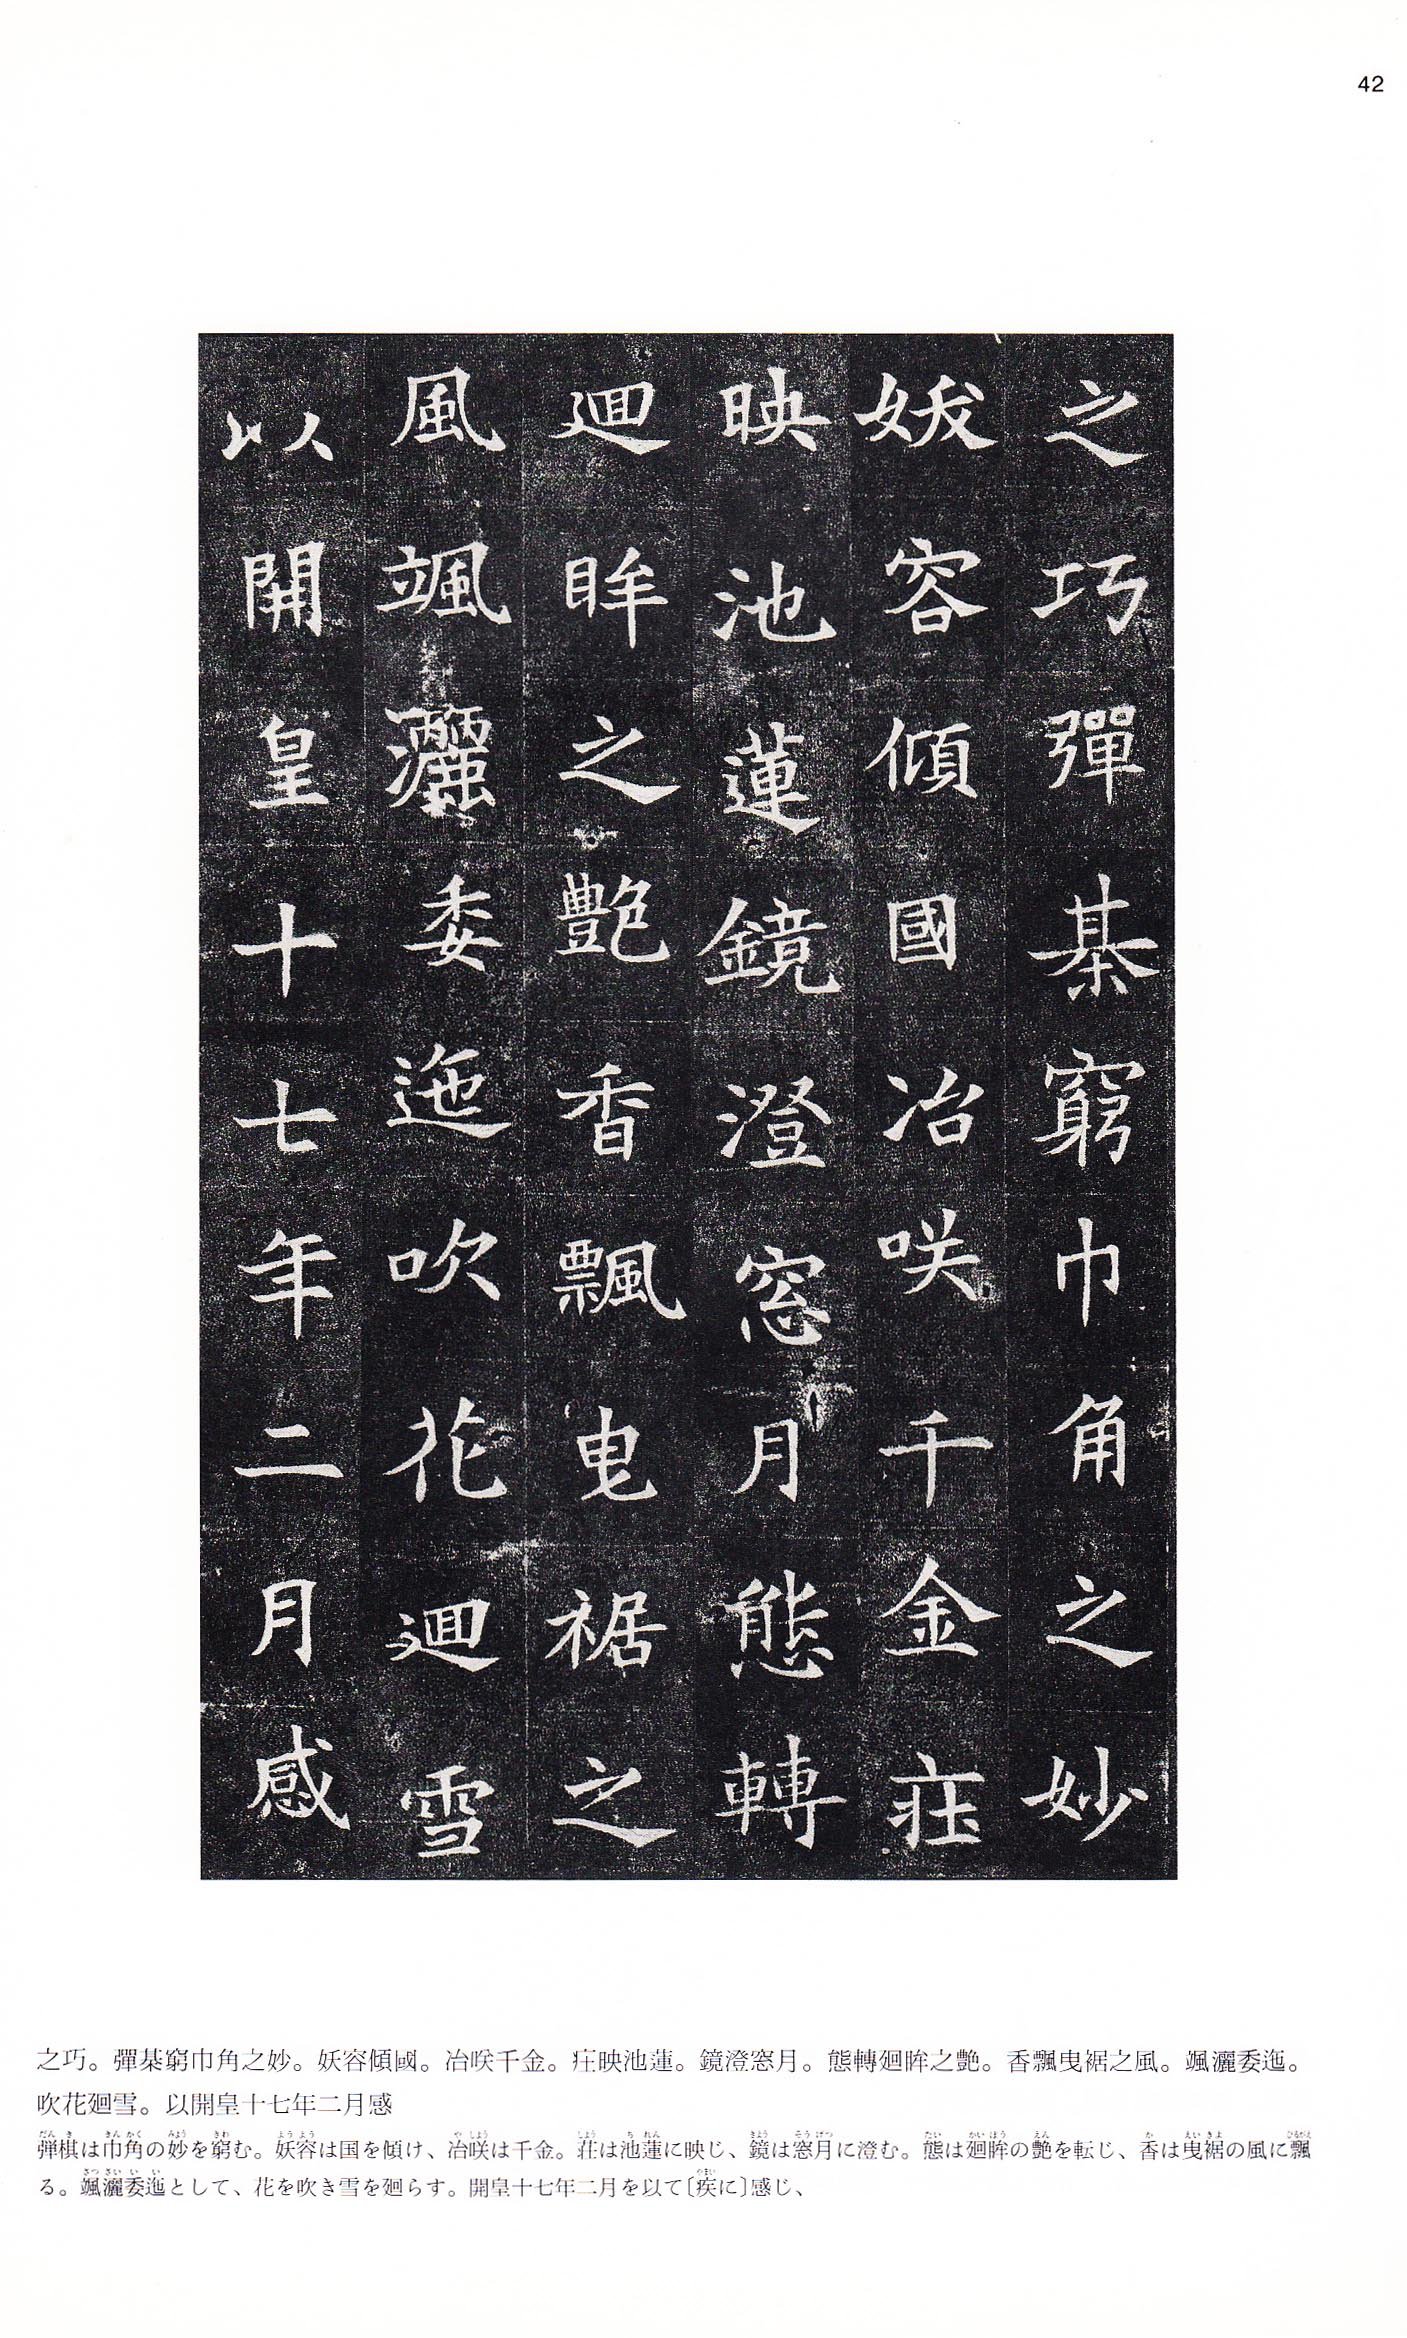 42
之巧彈棊窮巾角之妙
妖容傾國冶咲千金疘
映池蓮鏡澄窓月態轉
廻眸之艷香飄曳裾之
風颯灑委迤吹花廻雪
以開皇十七年二月感
之巧。彈棊窮巾角之妙。妖容傾國。冶咲千金。疘映池蓮。鏡澄窓月。態轉廻眸之艷。香飄曳裾之風。颯灑委迤。
吹花廻雪。以開皇十七年二月感
弾棋は巾角の妙を窮む。妖容は国を傾け、冶咲は千金。荘は池蓮に映じ、鏡は窓月に澄む。態は廻眸の艶を転じ、香は曳裾の風に飄
る。颯灑委迤として、花を吹き雪を廻らす。開皇十七年二月を以て〔疾に〕感じ、